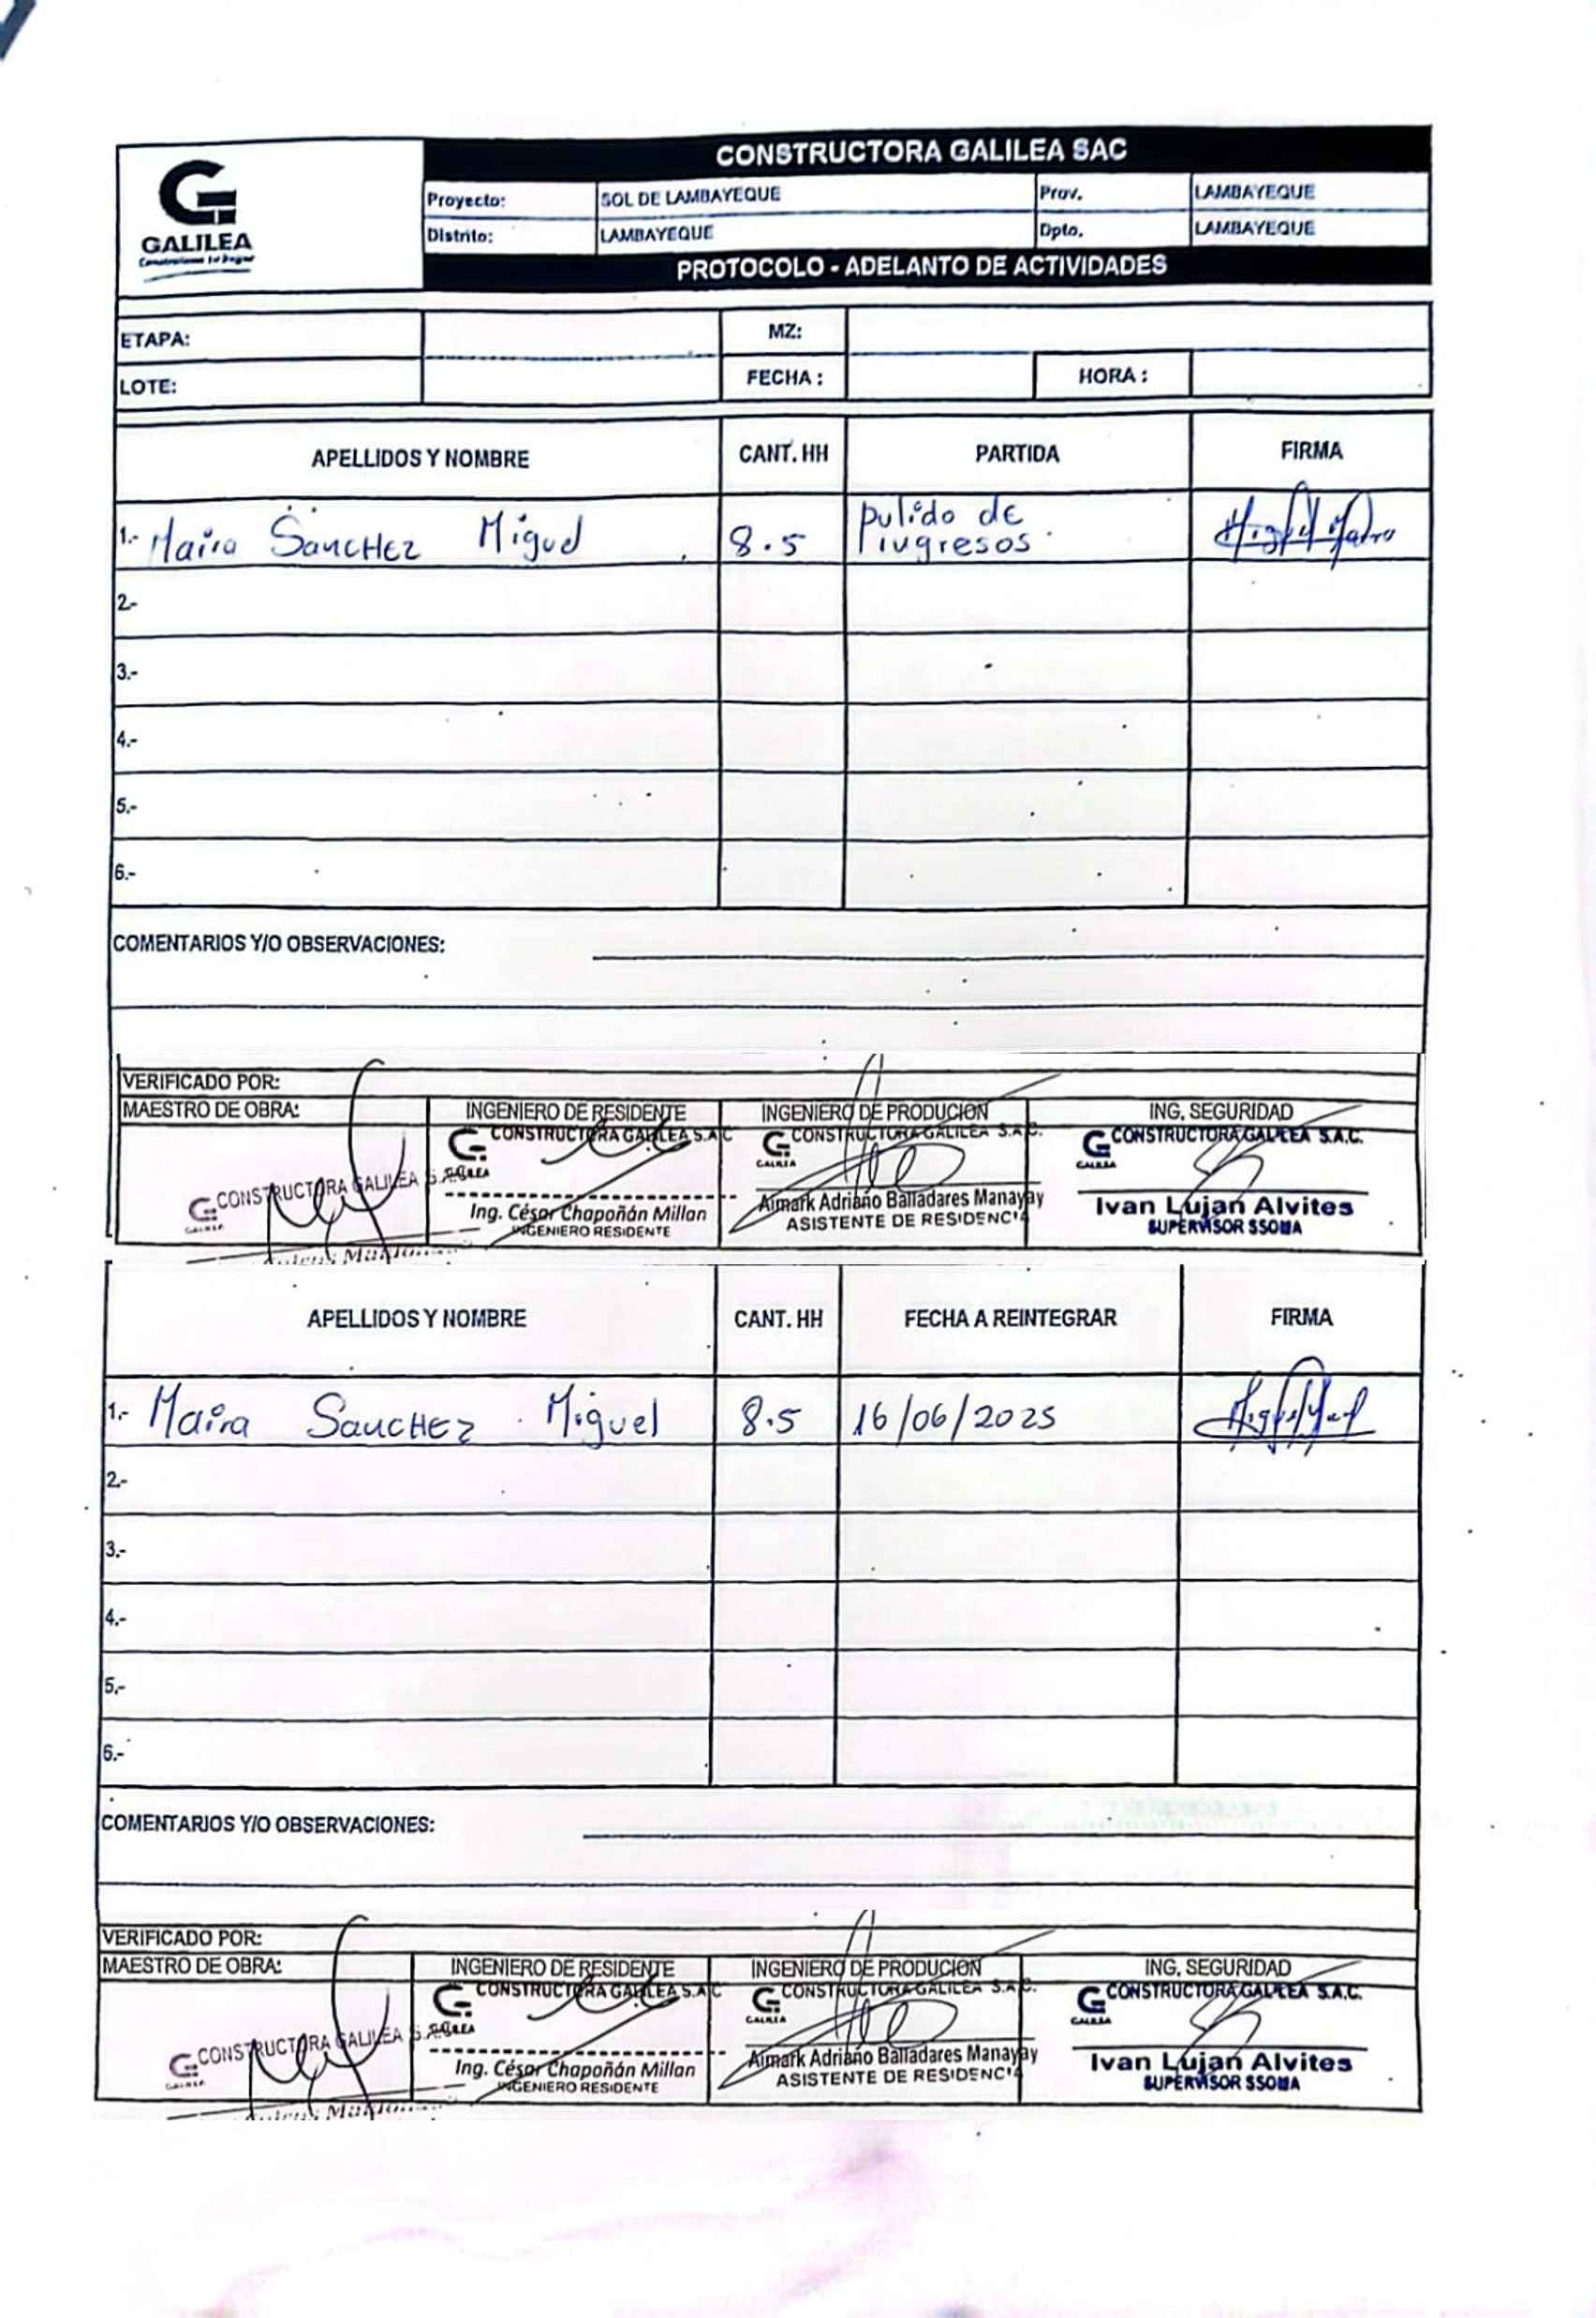 CONSTRUCTORA GALILEA SAC
GALILEA
Construimos tu hogar
Proyecto: SOL DE LAMBAYEQUE Prov. LAMBAYEQUE
Distrito: LAMBAYEQUE Dpto. LAMBAYEQUE
PROTOCOLO - ADELANTO DE ACTIVIDADES
ETAPA: MZ:
LOTE: FECHA : HORA :
APELLIDOS Y NOMBRE CANT. HH PARTIDA FIRMA
1.- Maira SancHez Miguel 8.5 pulido de
ingresos.
2.-
3.-
4.-
5.-
6.-
COMENTARIOS Y/O OBSERVACIONES:
VERIFICADO POR:
MAESTRO DE OBRA: INGENIERO DE RESIDENTE INGENIERO DE PRODUCION ING. SEGURIDAD
CONSTRUCTORA GALILEA S.A.C. CONSTRUCTORA GALILEA S.A.C. CONSTRUCTORA GALILEA S.A.C. CONSTRUCTORA GALILEA S.A.C.
GALILEA GALILEA GALILEA GALILEA
Ing. César Chapoñán Millan Aimark Adriano Balladares Manayay Ivan Lujan Alvites
INGENIERO RESIDENTE ASISTENTE DE RESIDENCIA SUPERVISOR SSOMA
APELLIDOS Y NOMBRE CANT. HH FECHA A REINTEGRAR FIRMA
1.- Maira SancHez Miguel 8.5 16/06/2025
2.-
3.-
4.-
5.-
6.-
COMENTARIOS Y/O OBSERVACIONES:
VERIFICADO POR:
MAESTRO DE OBRA: INGENIERO DE RESIDENTE INGENIERO DE PRODUCION ING. SEGURIDAD
CONSTRUCTORA GALILEA S.A.C. CONSTRUCTORA GALILEA S.A.C. CONSTRUCTORA GALILEA S.A.C. CONSTRUCTORA GALILEA S.A.C.
GALILEA GALILEA GALILEA GALILEA
Ing. César Chapoñán Millan Aimark Adriano Balladares Manayay Ivan Lujan Alvites
INGENIERO RESIDENTE ASISTENTE DE RESIDENCIA SUPERVISOR SSOMA